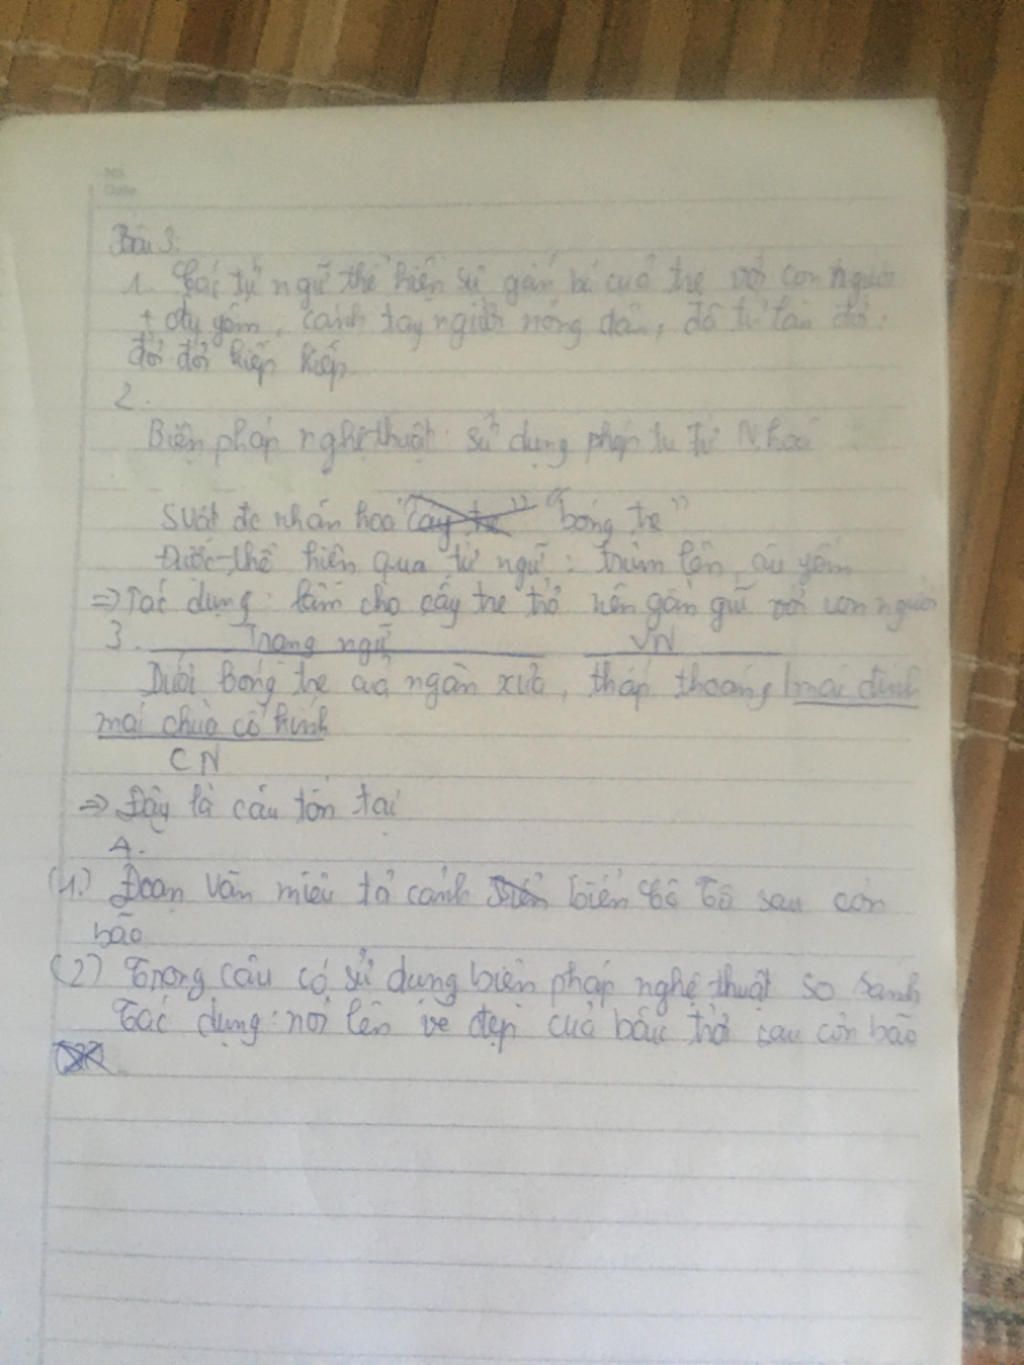 No.
Date
Bài 3:
1. Các từ ngữ thể hiện sự gắn bó của tre với con người
+ âu yếm, cánh tay người nông dân,
đời đời kiếp kiếp
2.
Biện pháp nghệ thuật: sử dụng phép tu từ Nhân hoá
đc nhân hoá "cây tre" "bóng tre"
Được thể hiện qua từ ngữ: trùm lên, âu yếm
=> Tác dụng: làm cho cây tre trở nên gần gũi với con người
3. Trạng ngữ VN
Dưới bóng tre của ngàn xưa, thấp thoáng / mái đình
mái chùa cổ kính
CN
=> Đây là câu tồn tại
4.
(1.) Đoạn văn miêu tả cảnh biển Cô Tô sau cơn
bão
(2) Trong câu có sử dụng biện pháp nghệ thuật so sánh
Tác dụng: nói lên vẻ đẹp của bầu trời sau cơn bão